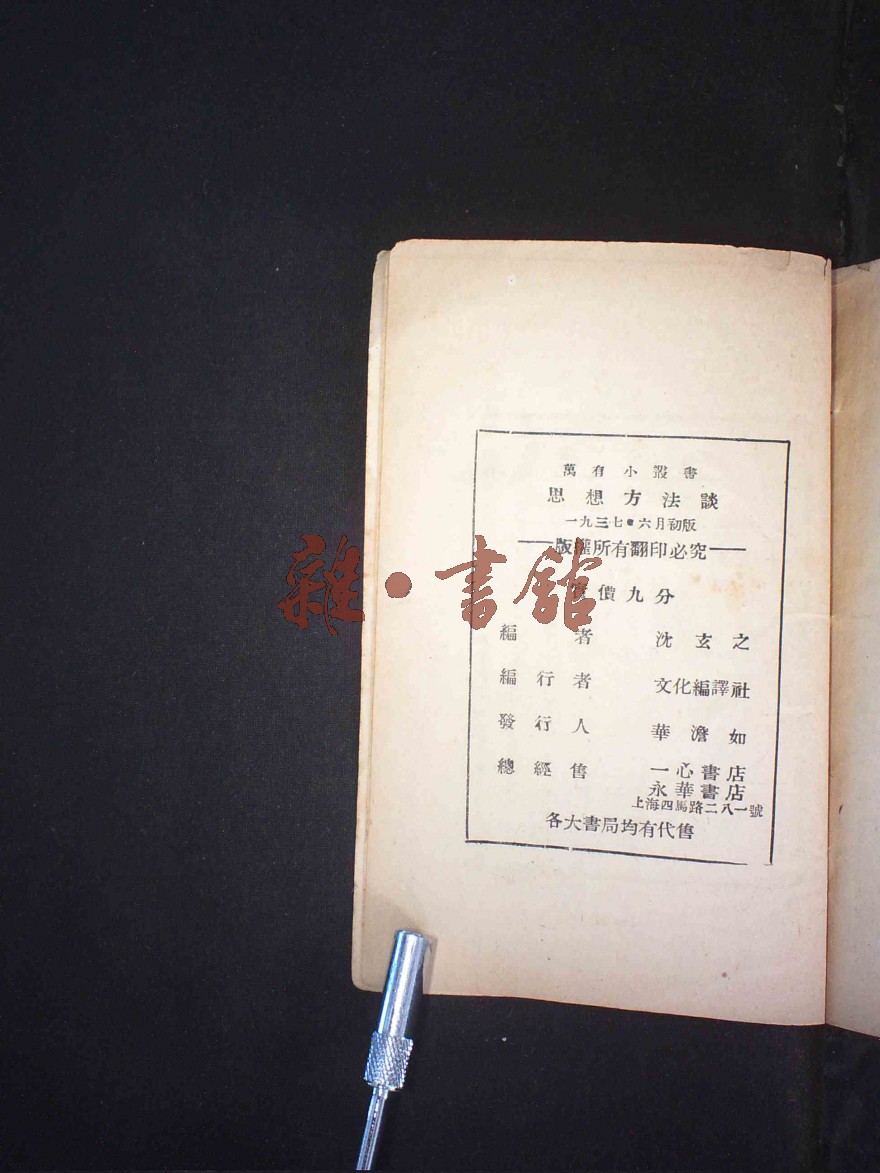 萬有小叢書
思想方法談
一九三七・六月初版
版權所有翻印必究
實價九分
編者 沈玄之
編行者 文化編譯社
發行人 華澹如
總經售 一心書店
永華書店
上海四馬路二八一號
各大書局均有代售
雜・書館